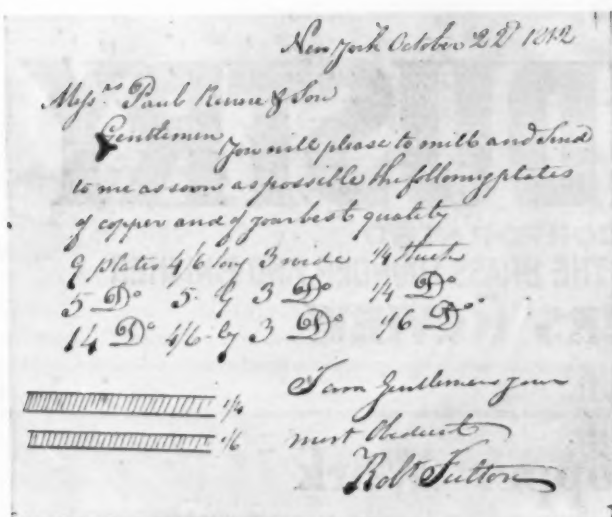 New York October 22d 1812
Messrs Paul Revere & Son
Gentlemen You will please to mill and send
to me as soon as possible the following plates
of copper and of your best quality
9 plates 4/6 long 3 wide 1/4 thick
5 Do 5 - by 3 Do 1/4 Do
14 Do 4/6 - by 3 Do 1/6 Do
I am Gentlemen your
1/4
most Obedient
1/6
Robt Fulton